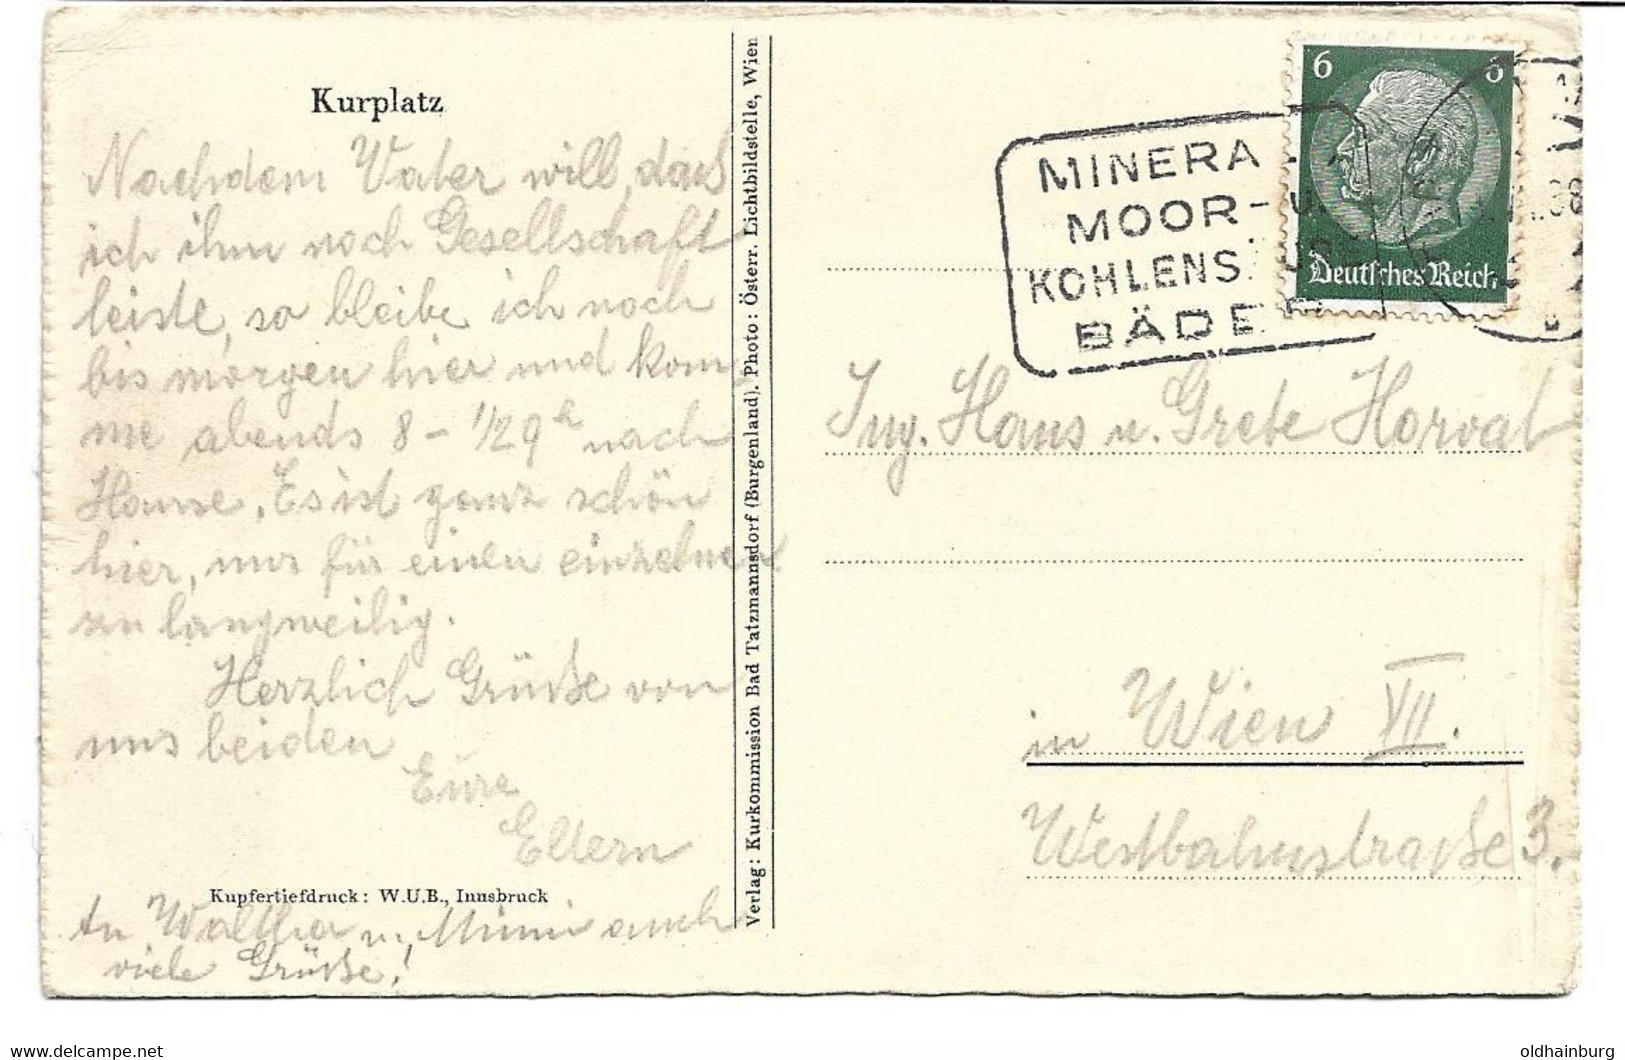 Kurplatz
Nachdem Vater will, dass
ich ihm noch Gesellschaft
leiste, so bleibe ich noch
bis morgen hier und kom-
me abends 8 - 1/2 9 h nach
Hause. Es ist ganz schön
hier, nur für einen einzelnen
zu langweilig.
Herzlich Grüsse von
uns beiden
Eure
Eltern
Kupfertiefdruck: W.U.B., Innsbruck
An Waltha u. Mimi auch
viele Grüsse!
Verlag: Kurkommission Bad Tatzmannsdorf (Burgenland). Photo: Österr. Lichtbildstelle, Wien
MINERA
MOOR- u.
KOHLENS
BÄDE
6 6
Deutsches Reich
38
Ing. Hans u. Grete Horvat
in Wien VII.
Westbahnstraße 3.
delcampe.net
oldhainburg